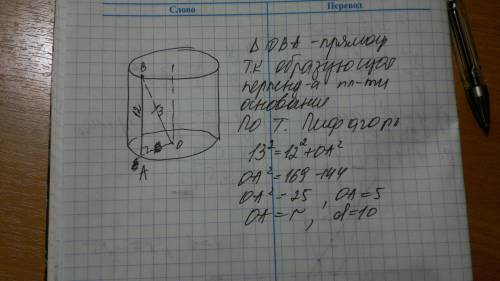 Слово Перевод
Δ OBA - прямоу
т.к образующая
перпенд-а пл-ти
основания
По Т. Пифагора
13²=12²+OA²
OA²=169-144
OA²=25, OA=5
OA=r, d=10
B
12
13
O
A